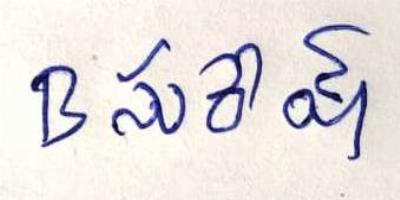 B సురేష్